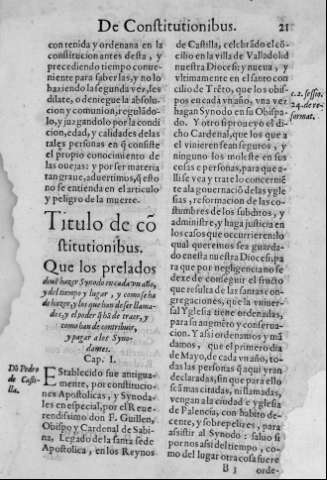 De Constitutionibus. 21
contenida y ordenana en la
constitucion antes desta, y
precediendo tiempo conue-
niente para saber las, y no lo
haziendo la segunda vez, les
dilate, o deniegue la absolu-
cion y comunion, regulādo-
lo, y juzgandolo por la condi
cion, edad, y calidades de las
tales personas en q̄ consiste
el propio conocimiento de
las ouejas: y por ser materia
tan graue, aduertimos, q̄ esto
no se entienda en el articulo
y peligro de la muerte.
Titulo de cō
stitutionibus.
Que los prelados
deuē hazer Synodo en cada vn año,
y del tiempo y lugar, y como se ha
de hazer, y los que han de ser llama-
dos, y el poder q̄ hā de traer, y
como han de contribuir,
y pagar a los Syno-
dantes.
Cap. I.
Dō Pedro
de Casti-
lla.
Establecido fue antigua-
mente, por constitucio-
nes Apostolicas, y Synoda-
les en especial, por el R eue-
rendissimo don F. Guillen,
Obispo y Cardenal de Sabi-
na, Legado de la santa sede
Apostolica, en los Reynos
de Castilla, celebrādo el cō-
cilio en la villa de Valladolid
nuestra Diocesi; y nueua, y
vltimamente en el santo con
cilio de Trēto, que los obis-
pos en cada vn año, vna vez
hagan Synodo en su Obispa-
do. Y otrosi proueyo el di-
cho Cardenal, que los que a
el vinieren sean seguros, y
ninguno los moleste en sus
cosas y personas, para que a-
lli se vea y trate lo concerniē
te a la gouernaciō de las ygle
sias, reformacion de las co-
stumbres de los subditos, y
administre, y haga justicia en
los casos que occurrieren: lo
qual queremos sea guarda-
do en esta nuestra Diocesi; pa
ra que por negligencia no se
dexe de conseguir el fructo
que resulta de las santas con
gregaciones, que la vniuer-
sal Yglesia tiene ordenadas,
para su augmēto y conserua-
cion. Y assi ordenamos y mā
damos, que el primero dia
de Mayo, de cada vn año, to-
das las personas q̄ aqui yran
declaradas, sin que para ello
seā mas citadas, ni llamadas,
vengan a la ciudad e yglesia
de Palencia, con habito de-
cente, y sobrepelizes, para
assistir al Synodo: saluo si
por nos assi del tiempo, co-
mo del lugar otra cosa fuere
c.2. sesso.
24. de re-
format.
B 3 orde-